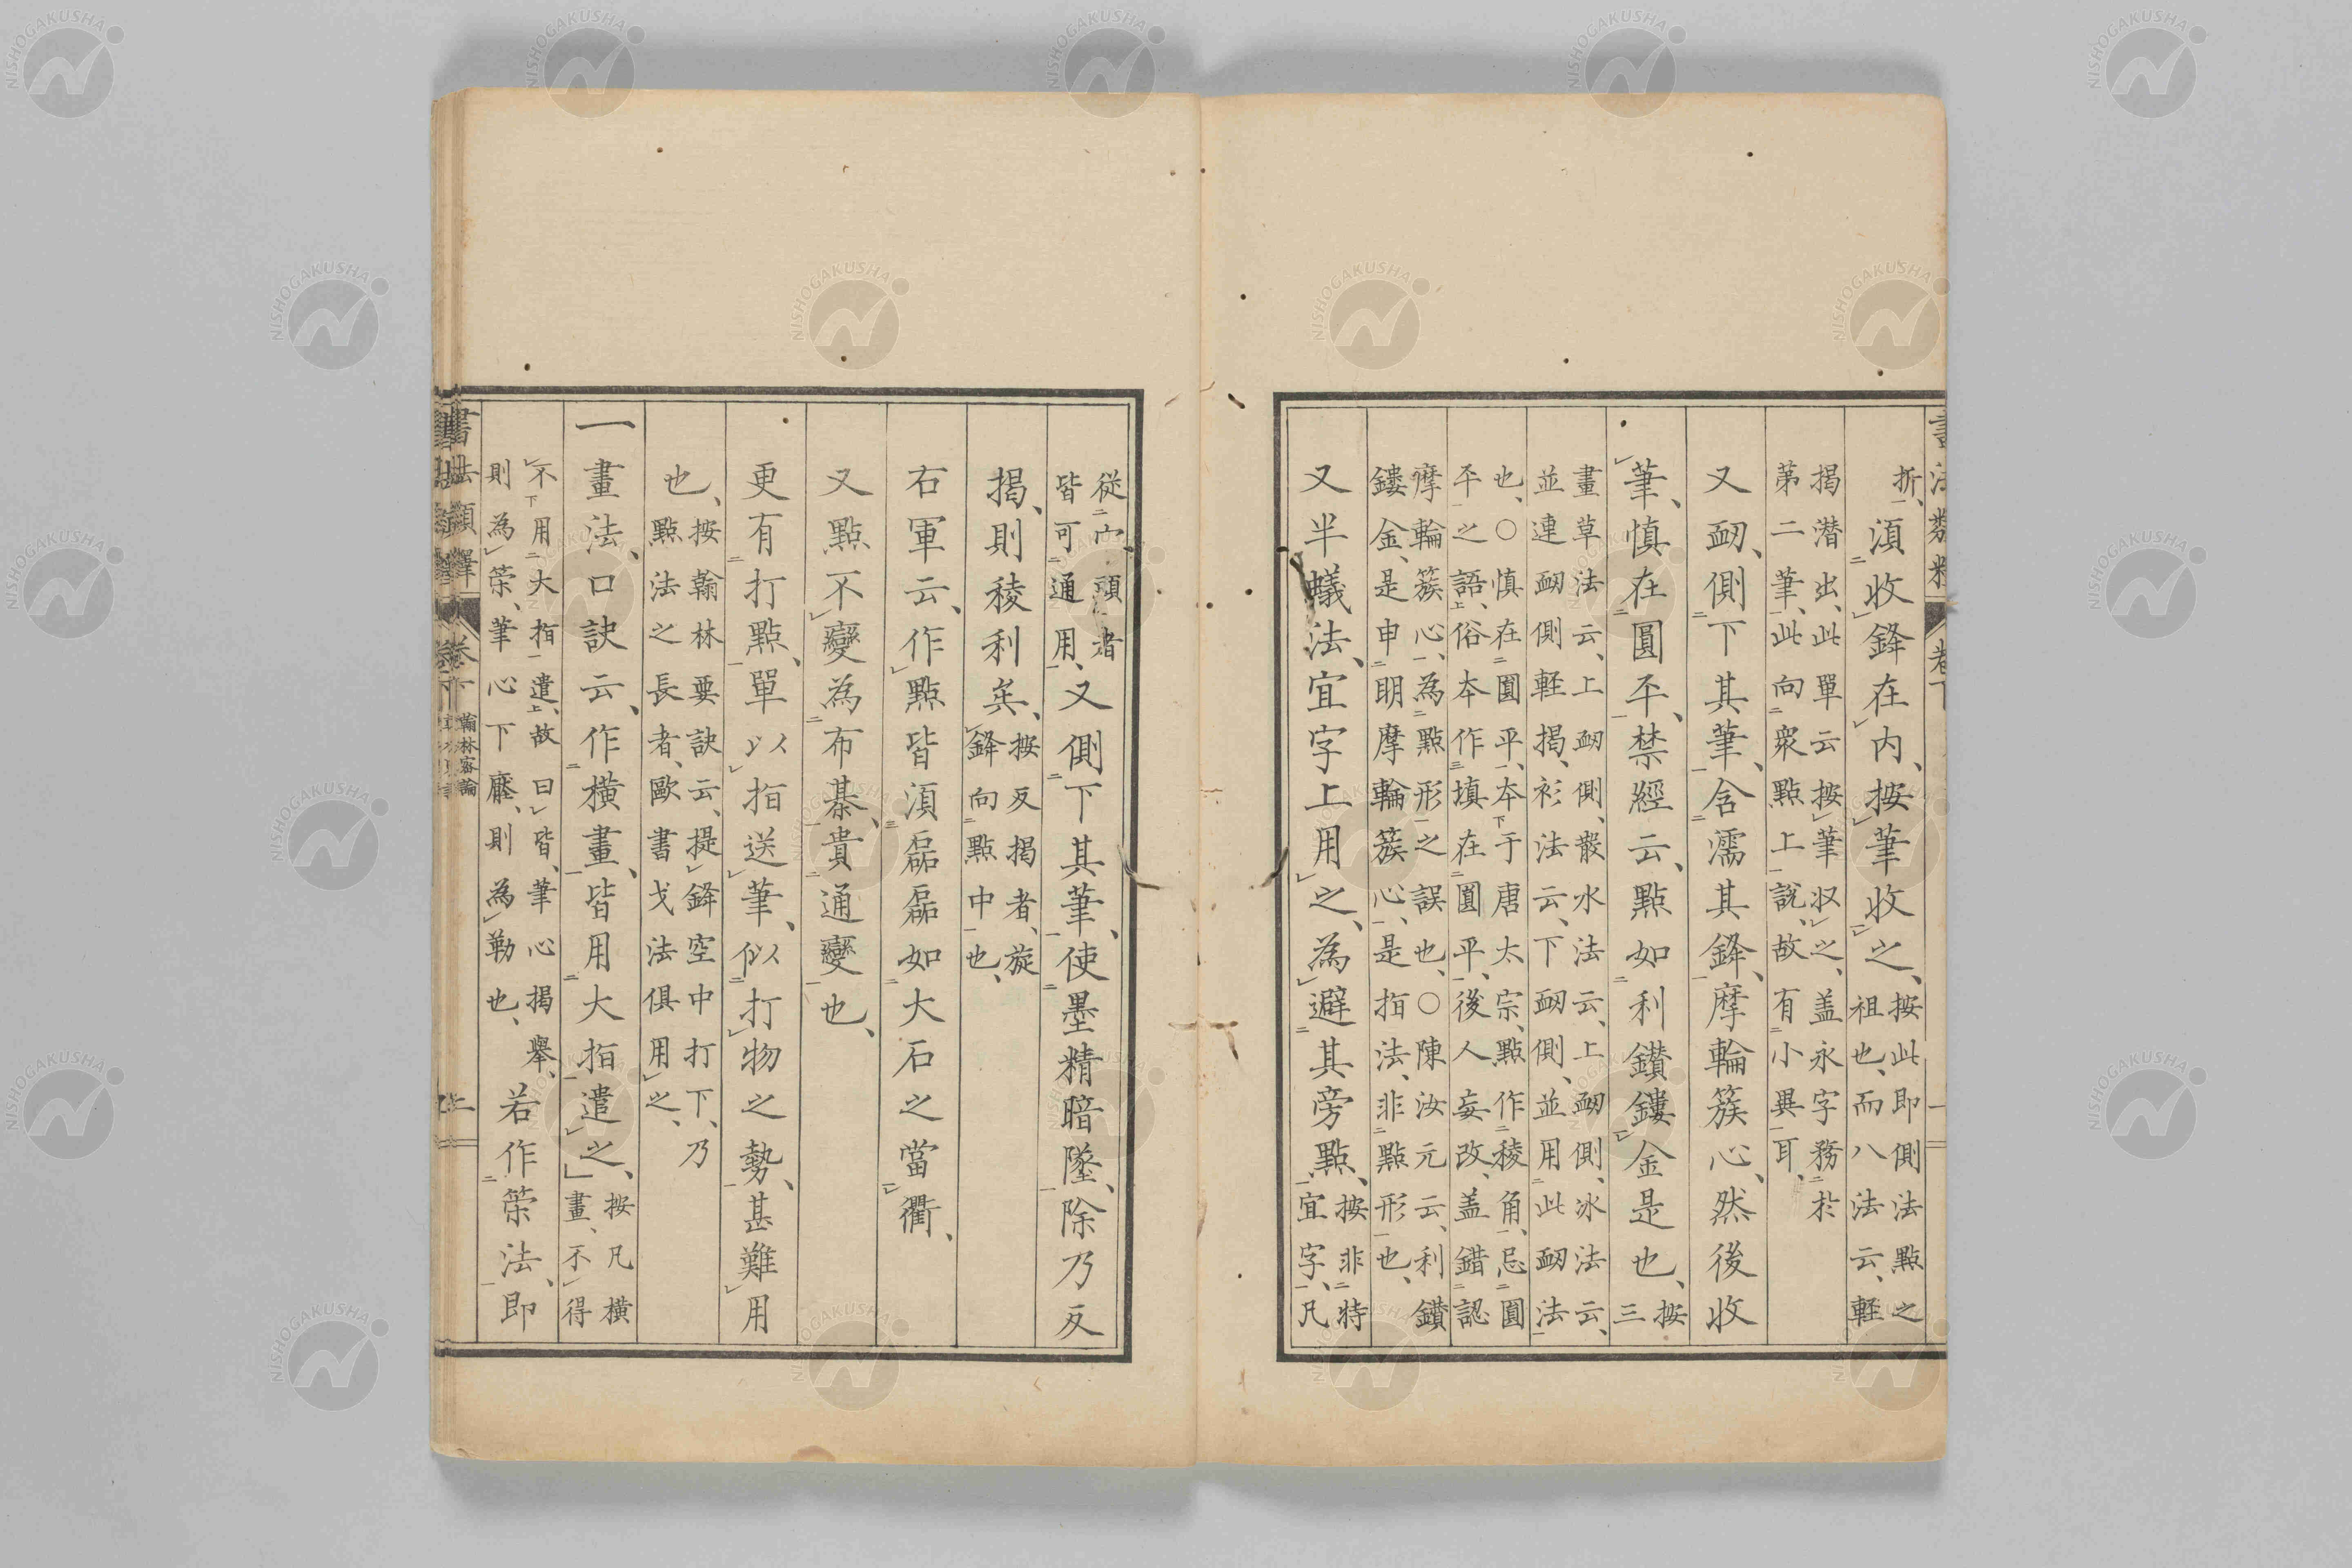 折、須收鋒在内、按筆收之、按此即側法點之
祖也、而八法云、軽
揭潜出、此單云按筆収之、盖永字務於
第二筆、此向衆點上説、故有小異耳、
又衂、側下其筆、含濡其鋒、摩輪簇心、然後收
筆、慎在圓平、禁經云、點如利鑚鏤金是也、按
三
畫草法云、上衂側、散水法云、上衂側、冰法云、
並連衂側軽揭、衫法云、下衂側、並用此衂法
也、○慎在圓平、本于唐太宗、點作稜角、忌圓
平之語、俗本作填在圓平、後人妄改、盖錯認
摩輪簇心、為點形之誤也、○陳汝元云、利鑚
鏤金、是申明摩輪簇心、是指法、非點形也、
又半蟻法、宜字上用之、為避其旁點、按非特
宜字、凡
從宀、頭者
皆可通用、又側下其筆、使墨精暗墜、除乃反
揭、則稜利矣、按反揭者、旋
鋒向點中也、
右軍云、作點皆須磊磊如大石之當衢、
又點不變為布棊、貴通變也、
更有打點、單以指送筆、似打物之勢、甚難用
也、按翰林要訣云、提鋒空中打下、乃
點法之長者、歐書戈法俱用之、
一畫法、口訣云、作橫畫、皆用大指遣之、按凡橫
畫、不得
不用大指遣、故曰皆、筆心揭舉、
則為策、筆心下壓、則為勒也、若作策法、即
書法類釋 卷下 翰林密論